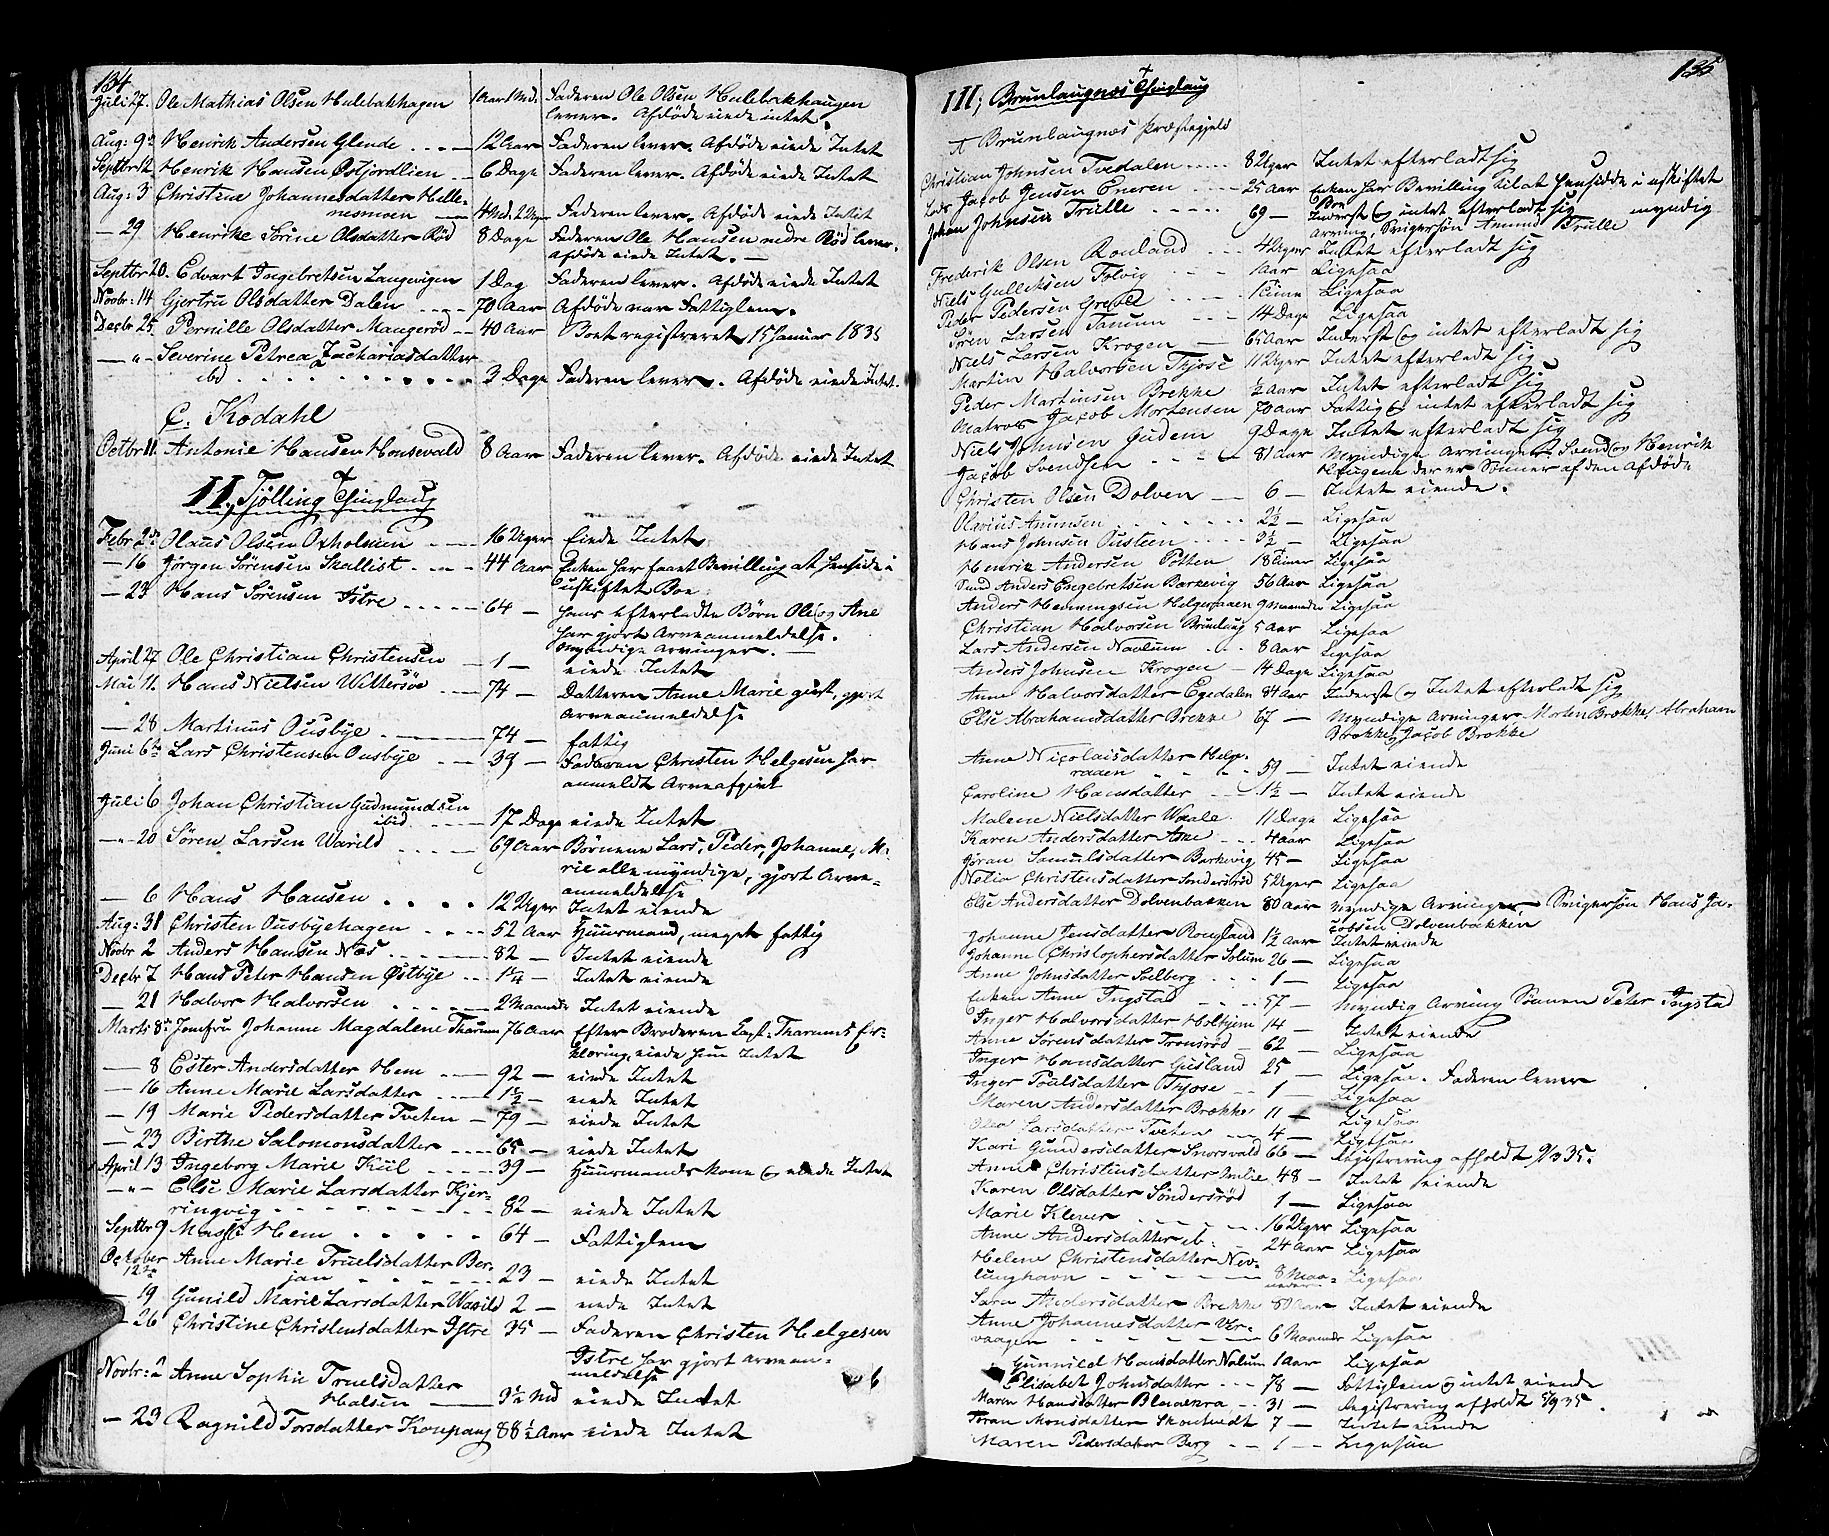 134
Juli 27. Ole Mathias Olsen Hulebakhagen 1 Aar 1 Md. Faderen Ole Olsen Hulebakhaugen
lever. Afdøde eiede intet.
Aug: 9de Henrik Andersen Glende 12 Aar Faderen lever. Afdøde eiede Intet
Septbr 12. Henrik Hansen Østfjordlien 6 Dage Faderen lever. Afdøde eiede Intet
Aug: 3 Christine Johannesdatter Helle-
nesmoen 4 Md. 2 Uger Faderen lever. Afdøde eiede Intet
— 29 Henrike Sørine Olsdatter Rød 8 Dage Faderen Ole Hansen nedre Rød lever.
Afdøde eiede Intet. —
Septbr 20. Edvart Ingebretsen Langvigen 1 Dag Faderen lever. Afdøde eiede Intet
Novbr: 14 Gjertru Olsdatter Dalen 70 Aar Afdøde var Fattiglem.
Decbr 25. Pernille Olsdatter Maugerød 40 Aar Boet registreret 15 Januar 1835
— " - Severine Petrea Zachariasdatter
ibd 3 Dage Faderen lever. Afdøde eiede Intet.
C. Kodahl
Octbr 11. Antonie Hansen Honsevald 8 Aar Faderen lever. Afdøde eiede Intet
II, Tjølling Thinglaug
Febr 2den Olaus Olsen Oxholmen 16 Uger Eiede Intet.
— 16 Jørgen Sørensen Skallist 44 Aar Enken har faaet Bevilling at hensidde i
uskiftet Boe
— 23 Hans Sørensen Istre 64 — hans efterladte Børn Ole og Ane
har gjort Arveanmeldelse.
Myndige Arvinger. —
April 27 Ole Christian Christensen 1 — eiede Intet
Mai 11. Hans Nielsen Wittersøe 74 — Datteren Anne Marie gift, gjort
Arveanmeldelse
— 28 Martinus Ousbye 74 — fattig
Juni 6te Lars Christensen Ousbye 39 — Faderen Christen Helgesen har
anmeldt Arveafgivt
Juli 6 Johan Christian Gudmundsen
ibid. 17 Dage eiede Intet
— " 20 Søren Larsen Warild 69 Aar Børnene Lars, Peder, Johanne, Ma-
rie alle myndige, gjort Arve-
anmeldelse
— 6 Hans Hansen 12 Uger Intet eiende
Aug: 31 Christen Ousbyehagen 52 Aar Huusmand, meget fattig
Novbr 2 Anders Hansen Næs 82 — Intet eiende
Decbr 7 Hans Peter Hansen Østbye 1¼ — Intet eiende
— 21 Halvor Halvorsen 2 Maaneder Intet eiende
Marts 8de Jomfru Johanne Magdalene Tharum 76 Aar Efter Broderen Capt. Tharums Er-
klæring eiede hun Intet
— 8 Ester Andersdatter Hem 92 — eiede Intet
— 16 Anne Marie Larsdatter 1½ — eiede Intet
— 19 Marie Pedersdatter Tveten 79 — eiede Intet
— 23 Birthe Salomonsdatter 65 — eiede Intet
April 13 Ingeborg Marie Kiil 39 — Huusmandskone og eiede Intet
— " - Else Marie Larsdatter Kjer-
ringvig 82 — eiede Intet
Septbr 9 Hem 64 — Fattiglem
October
12te Anne Marie Truelsdatter Ber-
jan 23 — eiede Intet
— 19 Gunild Marie Larsdatter Warild 2 — eiede Intet
— 26 Christine Christensdatter Istre 35 — Faderen Christen Helgesen
Istre har gjort Arvean-
meldelse
Novbr: 2 Anne Sophie Truelsdatter
Halsen 9½ Md eiede Intet
— 23 Ragnild Torsdatter Kaupang 88½ Aar eiede Intet
135
III, Brunlaugnæs Thinglaug
A Brunlaugnæs Præstegjeld
Christian Johnsen Tvedalen 8 Uger Intet efterladt sig
Lods Jacob Jensen Eneren 25 Aar Enken har Bevilling til at hensidde i uskiftet
Boe
Johan Johnsen Trulle 69 — Inderst og intet efterladt sig myndig
Arving, Svigersøn Amund Trulle
Frederik Olsen Rouland 4 Uger Intet efterladt sig
Niels Gulliksen Folvig 1 Aar Ligesaa
Peder Pedersen Grevle 1 Time Ligesaa
Søren Larsen Tanum 14 Dage Ligesaa
Niels Larsen Krogen 65 Aar Inderst og intet efterladt sig
Martin Halvorsen Tjose 11 Uger Intet efterladt sig
Peder Martinsen Brekke ½ Aar Intet efterladt sig
Matros Jacob Mortensen 70 Aar Fattig og intet efterladt sig
Niels Johnsen Gudem 9 Dage Intet efterladt sig
Jacob Svendsen 81 Aar Myndige Arvinger Svend og Henrik
Haugene der er Sønner af den Afdøde
Christen Olsen Dolven 6 — Intet eiende.
Olavius Amunsen 2½ — Ligesaa
Hans Johnsen Ousteen 3½ — Ligesaa
Henrik Andersen Potten 18 Timer Ligesaa
Anders Engebretsen Barkevig 56 Aar Ligesaa
Anders Henningsen Helgeraaen 9 Maaneder Ligesaa
Christian Halvorsen Brunlaug 5 Aar Ligesaa
Lars Andersen Navlum 8 Aar Ligesaa
Anders Johnsen Krogen 14 Dage Ligesaa
Anne Halvorsdatter Egedalen 84 Aar Inderst og Intet efterladt sig
Else Abrahamsdatter Brekke 67 — Myndige Arvinger Morten Brække, Abraham
Brække, Jacob Brække
Anne Nicolaisdatter Helge-
raaen 59 — Intet eiende
Caroline Hansdatter 1½ — Intet eiende
Malene Nielsdatter Waale 11 Dage Ligesaa
Karen Andersdatter Aske 4 Aar Ligesaa
Jøran Samulsdatter Barkevig 45 — Ligesaa
Nelia Christensdatter Søndersrød 5 Uger Ligesaa
Else Andersdatter Dolvenbakken 80 Aar Myndige Arvinger Svigersøn Hans Ja-
cobsen Dolvenbakken
Johanne Jensdatter Rougland 1½ Aar Intet eiende
Johanne Christophersdatter Solum 26 — Ligesaa
Anne Johnsdatter Solberg 1 — Ligesaa
Enken Anne Ingstad 57 — Myndig Arving Sønnen Peter Ingstad
Inger Halvorsdatter Holhjem 14 — Intet eiende
Anne Sørensdatter Tronsrød 62 — Ligesaa
Inger Hansdatter Gusland 25 — Ligesaa. Faderen lever
Inger Poulsdatter Tjose 1 — Ligesaa
Maren Andersdatter Brække 11 — Ligesaa
Olea Larsdatter Tveten 4 — Ligesaa
Kari Gundersdatter Snorsvald 66 — Registrering afholdt 9/3 35.
Anne Christensdatter 48 — Intet eiende
Karen Olsdatter Søndersrød 1 — Ligesaa
Marie Klever 16 Uger Ligesaa
Anne Andersdatter ib: 24 Aar Ligesaa
Helene Christensdatter Nev-
lunghavn 8 Maaneder Ligesaa
Sara Andersdatter Brekke 80 Aar Intet eiende
Anne Johannesdatter Ver-
vaagen 6 Maaneder Ligesaa
Gunnild Hansdatter Nalum 1 Aar Ligesaa
Elisabet Johnsdatter 78 — Fattiglem og intet eiende
Maren Hansdatter Blaaekra 31 — Registrering afholdt 5/9 35.
Jøran Monsdatter Skontvedt 7 — Intet eiende
Maren Pedersdatter Berg 1 — Ligesaa